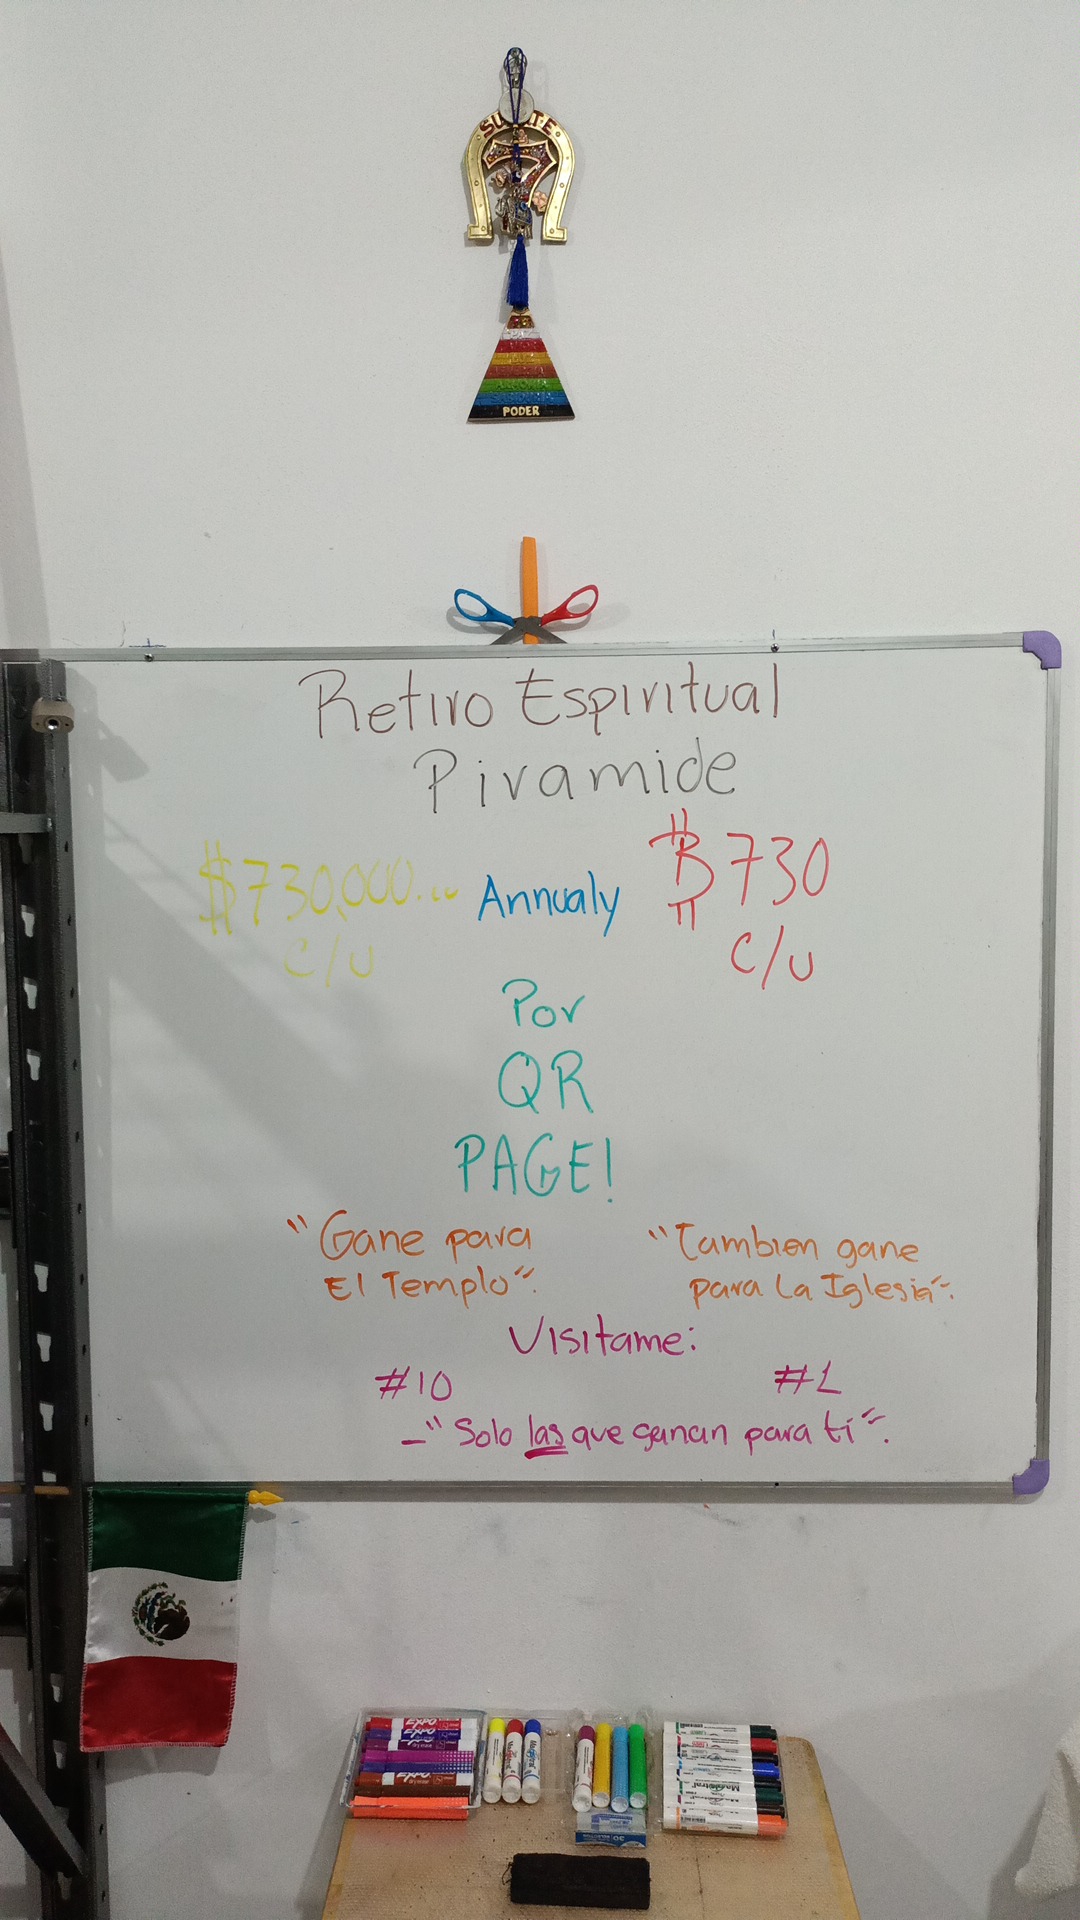 SUERTE
7
ARMONIA
PODER
Retiro Espiritual
Piramide
$730,000... Annualy ₿730
c/u c/u
Por
QR
PAGE!
"Gane para
El Templo".
"Tambien gane
para La Iglesia".
Visitame:
#10 #1
_"Solo las que ganan para ti".
EXPO
EXPO
EXPO
Magistral